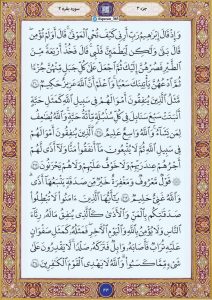 جزء ۳
سوره بقره ۲
وَإِذْ قَالَ إِبْرَٰهِـۧمُ رَبِّ أَرِنِى كَيْفَ تُحْىِ ٱلْمَوْتَىٰ قَالَ أَوَلَمْ تُؤْمِن
قَالَ بَلَىٰ وَلَـٰكِن لِّيَطْمَئِنَّ قَلْبِى قَالَ فَخُذْ أَرْبَعَةً مِّنَ
ٱلطَّيْرِ فَصُرْهُنَّ إِلَيْكَ ثُمَّ ٱجْعَلْ عَلَىٰ كُلِّ جَبَلٍ مِّنْهُنَّ جُزْءًا
ثُمَّ ٱدْعُهُنَّ يَأْتِينَكَ سَعْيًا وَٱعْلَمْ أَنَّ ٱللَّهَ عَزِيزٌ حَكِيمٌ
مَّثَلُ ٱلَّذِينَ يُنفِقُونَ أَمْوَٰلَهُمْ فِى سَبِيلِ ٱللَّهِ كَمَثَلِ حَبَّةٍ
أَنۢبَتَتْ سَبْعَ سَنَابِلَ فِى كُلِّ سُنۢبُلَةٍ مِّا۟ئَةُ حَبَّةٍ وَٱللَّهُ يُضَـٰعِفُ
لِمَن يَشَآءُ وَٱللَّهُ وَٰسِعٌ عَلِيمٌ ٱلَّذِينَ يُنفِقُونَ أَمْوَٰلَهُمْ
فِى سَبِيلِ ٱللَّهِ ثُمَّ لَا يُتْبِعُونَ مَآ أَنفَقُوا۟ مَنًّا وَلَآ أَذًى لَّهُمْ
أَجْرُهُمْ عِندَ رَبِّهِمْ وَلَا خَوْفٌ عَلَيْهِمْ وَلَا هُمْ يَحْزَنُونَ
قَوْلٌ مَّعْرُوفٌ وَمَغْفِرَةٌ خَيْرٌ مِّن صَدَقَةٍ يَتْبَعُهَآ أَذًى
وَٱللَّهُ غَنِىٌّ حَلِيمٌ يَـٰٓأَيُّهَا ٱلَّذِينَ ءَامَنُوا۟ لَا تُبْطِلُوا۟
صَدَقَـٰتِكُم بِٱلْمَنِّ وَٱلْأَذَىٰ كَٱلَّذِى يُنفِقُ مَالَهُۥ رِئَآءَ
ٱلنَّاسِ وَلَا يُؤْمِنُ بِٱللَّهِ وَٱلْيَوْمِ ٱلْـَٔاخِرِ فَمَثَلُهُۥ كَمَثَلِ صَفْوَانٍ
عَلَيْهِ تُرَابٌ فَأَصَابَهُۥ وَابِلٌ فَتَرَكَهُۥ صَلْدًا لَّا يَقْدِرُونَ عَلَىٰ
شَىْءٍ مِّمَّا كَسَبُوا۟ وَٱللَّهُ لَا يَهْدِى ٱلْقَوْمَ ٱلْكَـٰفِرِينَ
۴۴